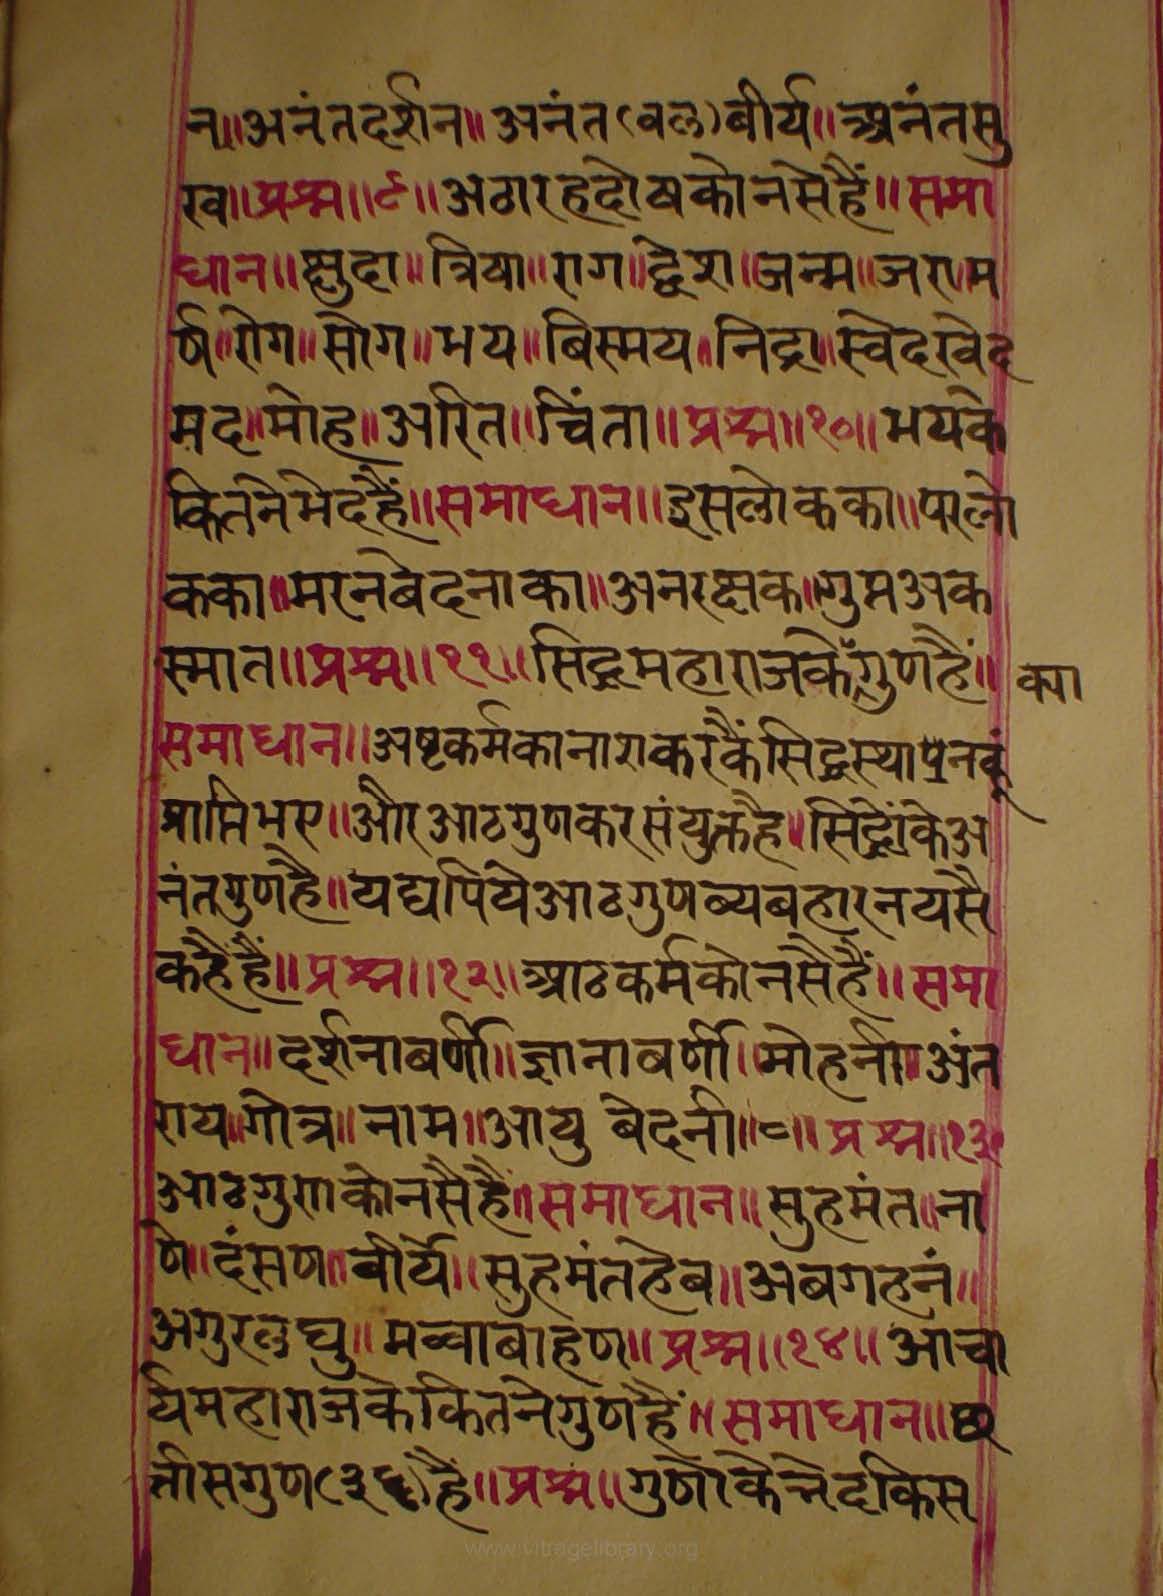 न॥अनंतदर्शन॥अनंत(बल)बीर्य॥अनंतसु
ख॥प्रश्न॥९॥अठारहदोषकोनसेहैं॥समा
धान॥क्षुदा॥त्रिषा॥राग॥द्वेश॥जन्म॥जरा॥म
र्ण॥रोग॥सोग॥भय॥बिस्मय॥निद्रा॥स्वेदखेद
मद॥मोह॥अरति॥चिंता॥प्रश्न॥१०॥भयके
कितनेभेदहैं॥समाधान॥इसलोकका॥परलो
कका॥मरनबेदनाका॥अनरक्षक॥गुप्तअक
स्मात॥प्रश्न॥११॥सिद्धमहाराजकेगुणहैं॥ क्या
समाधान॥अष्टकर्मकानाशकरकैंसिद्धस्थानकूं
प्राप्तिभए॥औरआठगुणकरसंयुक्तहै॥सिद्धोंकेअ
नंतगुणहै॥यद्यपियेआठगुणब्यबहारनयसै
कहैहैं॥प्रश्न॥१२॥आठकर्मकोनसैहैं॥समा
धान॥दर्शनाबर्णी॥ज्ञानाबर्णी॥मोहनी॥अंत
राय॥गोत्र॥नाम॥आयु बेदनी॥८॥प्रश्न॥१३॥
आठगुणकोनसैहैं॥समाधान॥सुहमंत॥ना
णे॥दंसण॥बीर्ये॥सुहमंतहेब॥अबगहनं॥
अगुरलघु॥मव्वाबाहण॥प्रश्न॥१४॥आचा
र्यमहाराजकेकितनेगुणहैं॥समाधान॥छ
त्तीसगुण(३६)हैं॥प्रश्न॥गुणोंकेभेदकिस
www.vitragelibrary.org